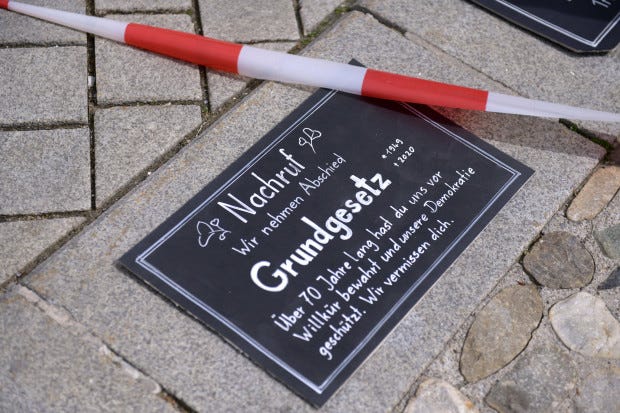 Nachruf
Wir nehmen Abschied
Grundgesetz
* 1949
† 2020
Über 70 Jahre lang hast du uns vor
Willkür bewahrt und unsere Demokratie
geschützt. Wir vermissen dich.